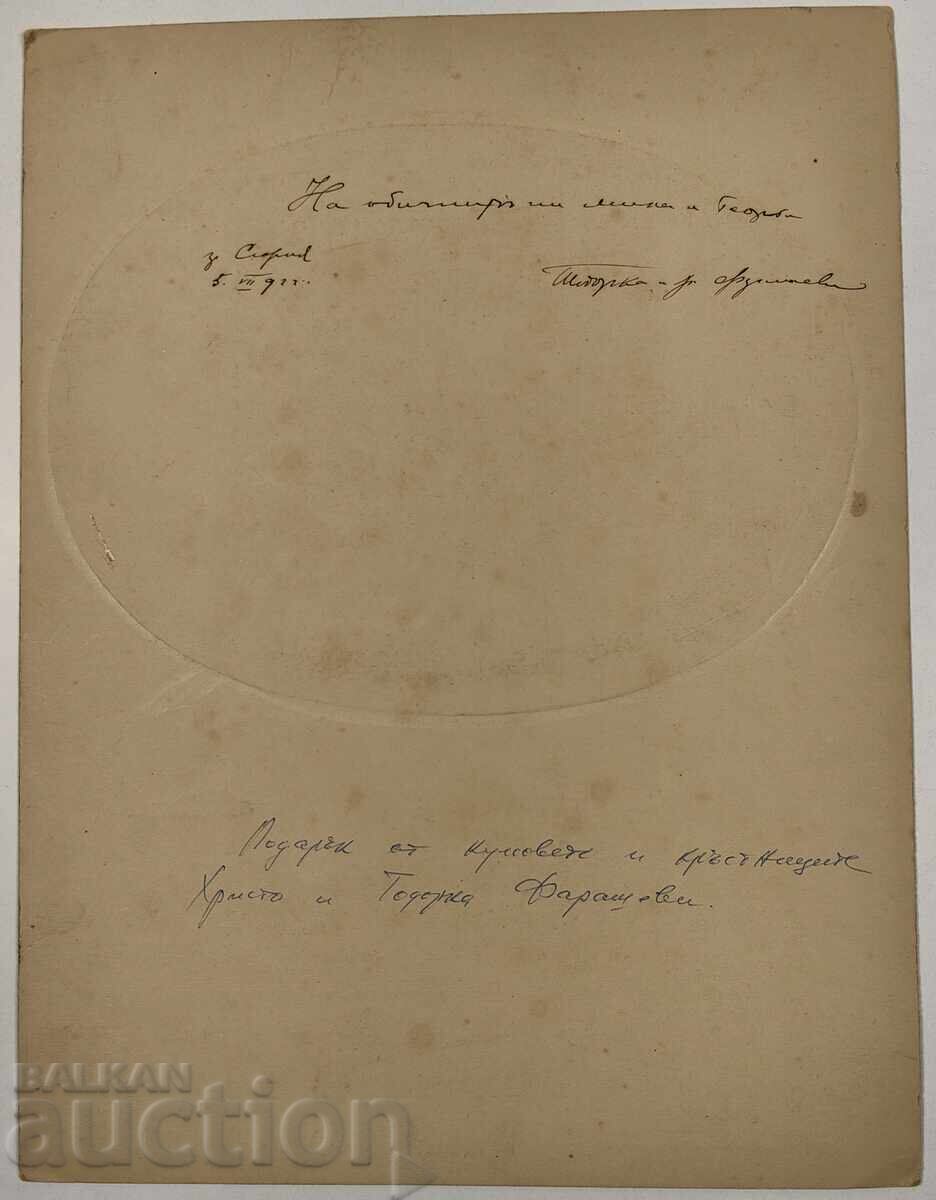 На обичнитѣ ни Мика и Георги
гр София
5. VII 922.
Тодорка и
Подарък от кумовете и кръстниците
Христо и Тодорка Фаращеви.
BALKAN
auction